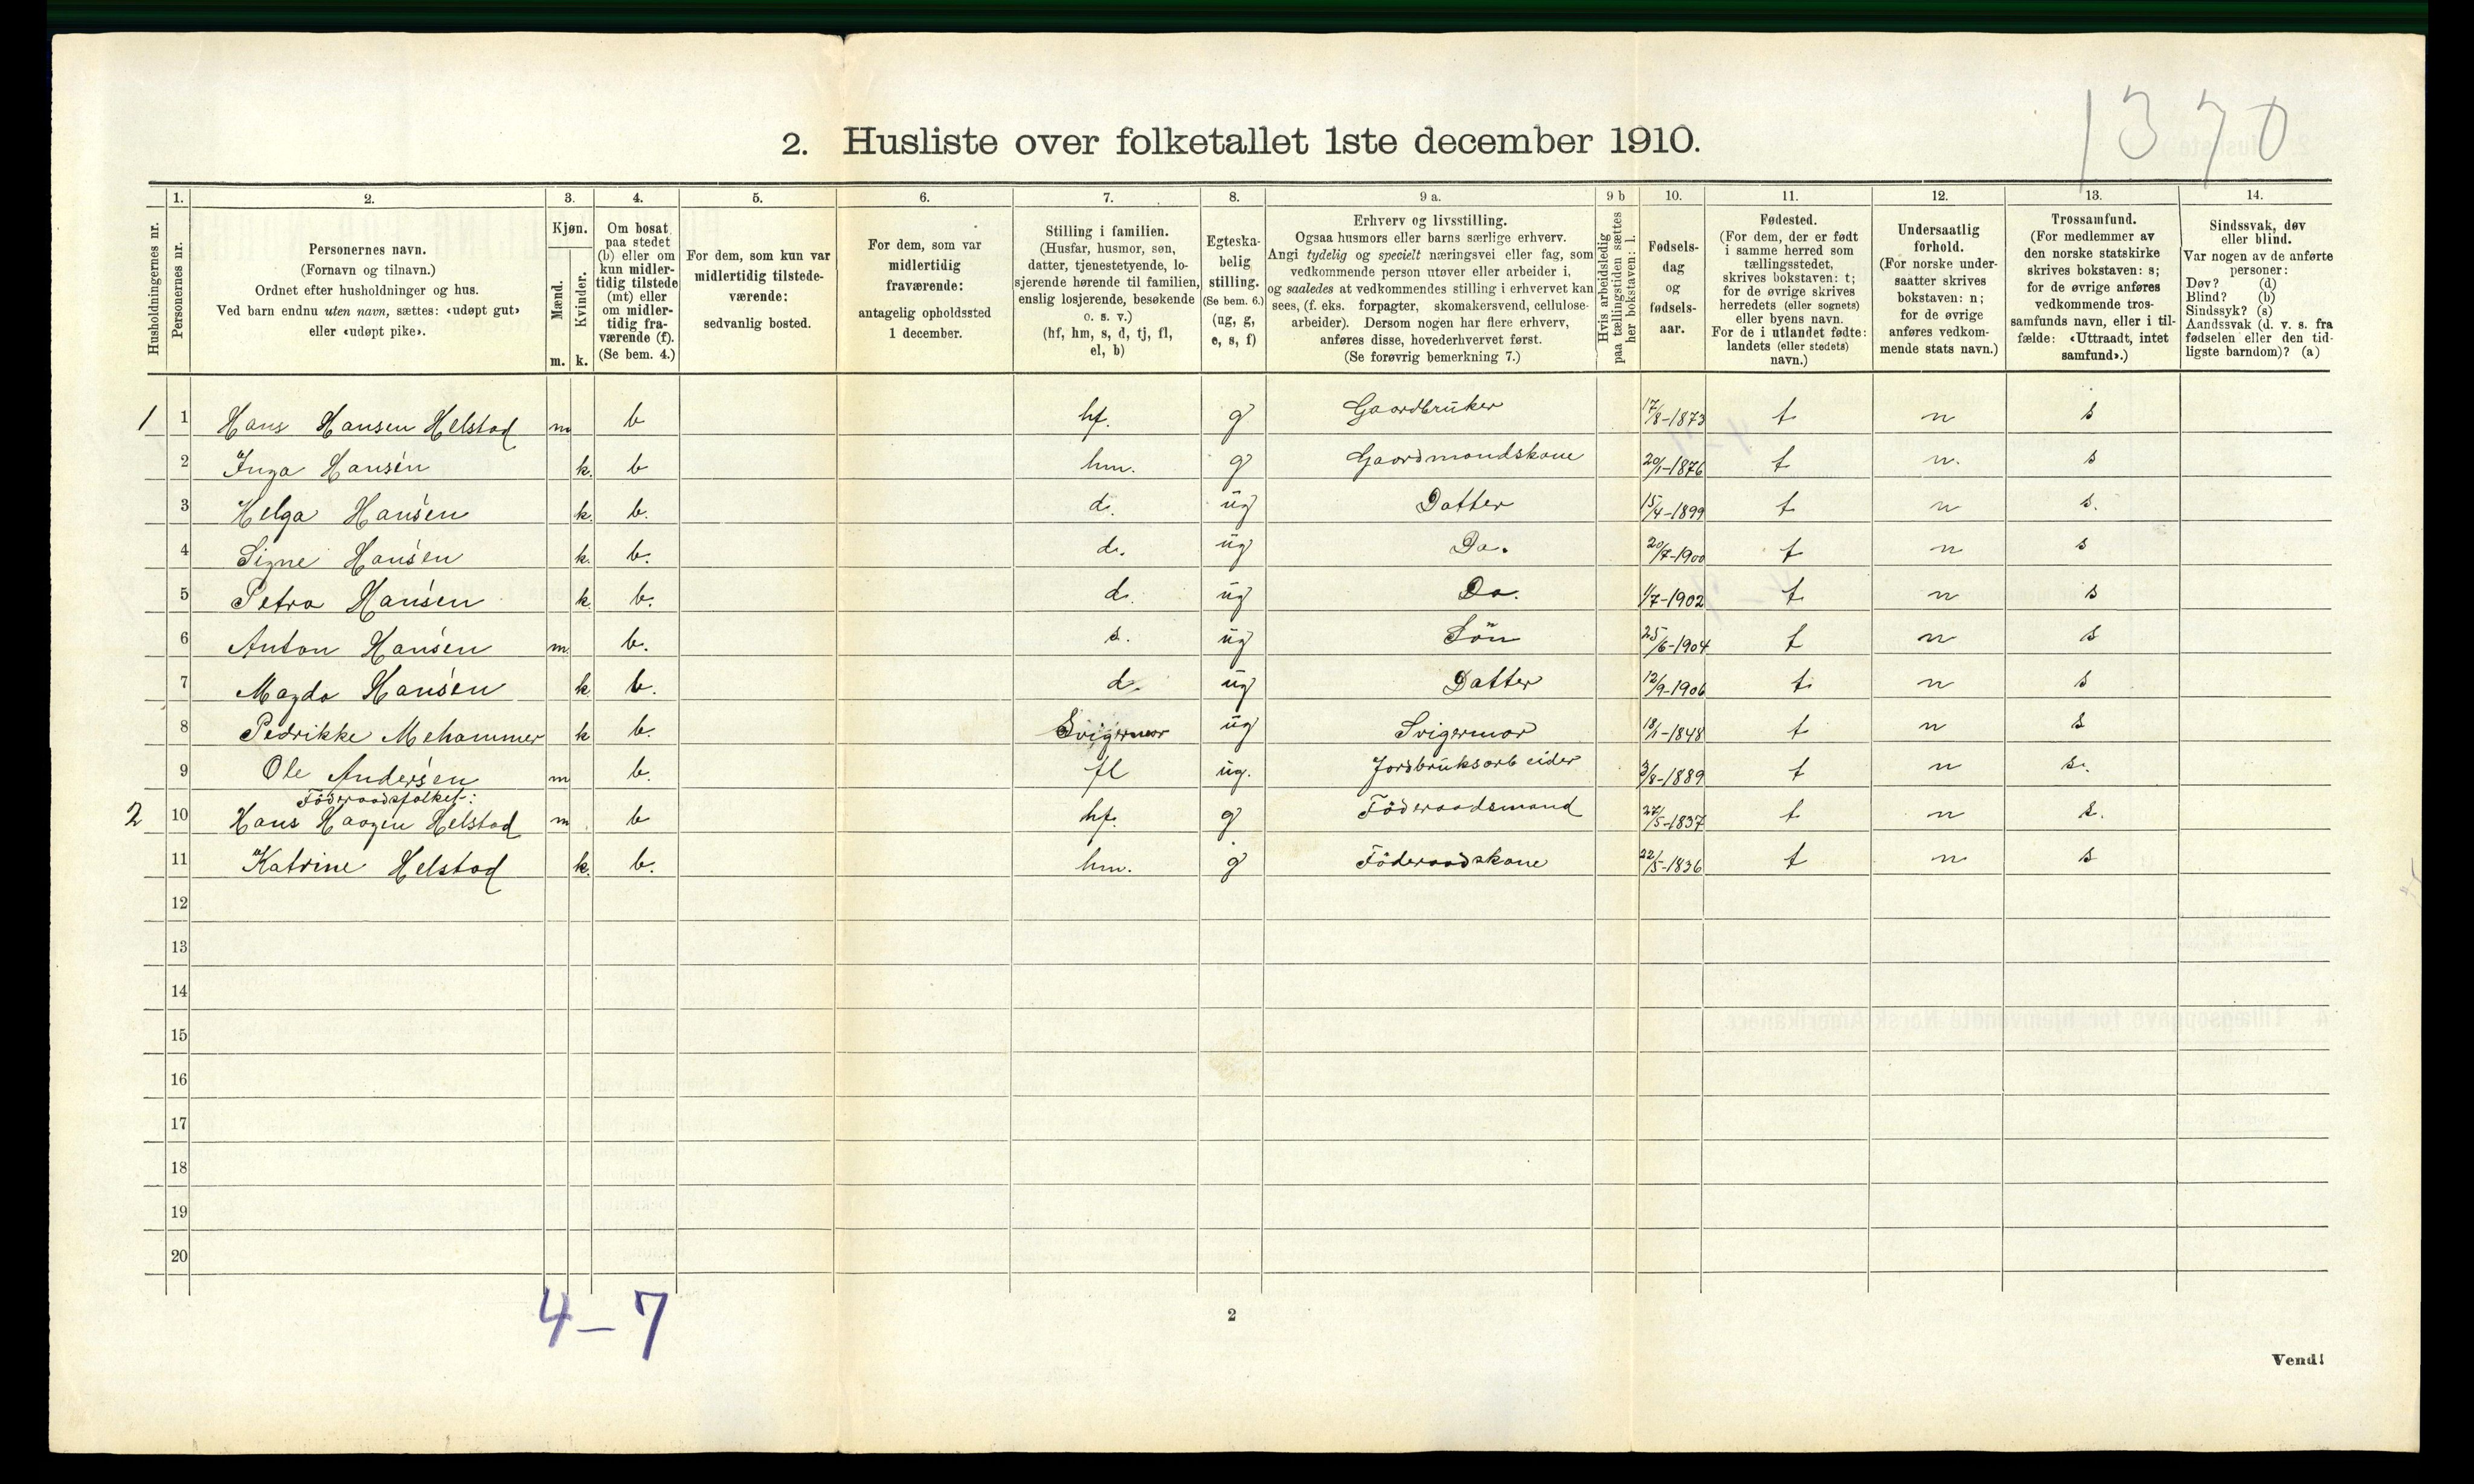 1370
2. Husliste over folketallet 1ste december 1910.
Husholdningernes nr.
1. Personernes nr.
2. Personernes navn.
(Fornavn og tilnavn.)
Ordnet efter husholdninger og hus.
Ved barn endnu uten navn, sættes: «udøpt gut»
eller «udøpt pike».
3. Kjøn.
Mænd. m.
Kvinder. k.
4. Om bosat
paa stedet
(b) eller om
kun midler-
tidig tilstede
(mt) eller
om midler-
tidig fra-
værende (f).
(Se bem. 4.)
5. For dem, som kun var
midlertidig tilstede-
værende:
sedvanlig bosted.
6. For dem, som var
midlertidig
fraværende:
antagelig opholdssted
1 december.
7. Stilling i familien.
(Husfar, husmor, søn,
datter, tjenestetyende, lo-
sjerende hørende til familien,
enslig losjerende, besøkende
o. s. v.)
(hf, hm, s, d, tj, fl,
el, b)
8. Egteska-
belig
stilling.
(Se bem. 6.)
(ug, g,
e, s, f)
9 a. Erhverv og livsstilling.
Ogsaa husmors eller barns særlige erhverv.
Angi tydelig og specielt næringsvei eller fag, som
vedkommende person utøver eller arbeider i,
og saaledes at vedkommendes stilling i erhvervet kan
sees, (f. eks. forpagter, skomakersvend, cellulose-
arbeider). Dersom nogen har flere erhverv,
anføres disse, hovederhvervet først.
(Se forøvrig bemerkning 7.)
9 b Hvis arbeidsledig
paa tællingstiden sættes
her bokstaven: l.
10. Fødsels-
dag
og
fødsels-
aar.
11. Fødested.
(For dem, der er født
i samme herred som
tællingsstedet,
skrives bokstaven: t;
for de øvrige skrives
herredets (eller sognets)
eller byens navn.
For de i utlandet fødte:
landets (eller stedets)
navn.)
12. Undersaatlig
forhold.
(For norske under-
saatter skrives
bokstaven: n;
for de øvrige
anføres vedkom-
mende stats navn.)
13. Trossamfund.
(For medlemmer av
den norske statskirke
skrives bokstaven: s;
for de øvrige anføres
vedkommende tros-
samfunds navn, eller i til-
fælde: «Uttraadt, intet
samfund».)
14. Sindssvak, døv
eller blind.
Var nogen av de anførte
personer:
Døv? (d)
Blind? (b)
Sindssyk? (s)
Aandssvak (d. v. s. fra
fødselen eller den tid-
ligste barndom)? (a)
1 1 Hans Hansen Helstad m b hf. g Gaardbruker 17/8-1873 t n s
2 Inga Hansen k. b hm. g Gaardmandskone 20/1-1876 t n. s
3 Helga Hansen k. b. d. ug Datter 15/4-1899 t n s.
4 Signe Hansen k. b. d. ug Do. 20/7-1900 t n s
5 Petra Hansen k. b. d. ug Do. 1/7-1902 t n s
6 Anton Hansen m. b. s. ug Sön 25/6-1904 t n s
7 Magda Hansen k b. d. ug Datter 12/9-1906 t n s
8 Pedrikke Mehammer k b. Svigermor ug Svigermor 18/1-1848 t n s
9 Ole Andersen m b. fl ug. Jordbruksarbeider 3/8-1889 t n s.
Föderaadsfolket:
2 10 Hans Haagen Helstad m b hf. g Föderaadsmand 27/5-1837 t n s.
11 Katrine Helstad k. b. hm. g Föderaadskone 22/5-1836 t n s
12
13
14
15
16
17
18
19
20
4-7
2
Vend!